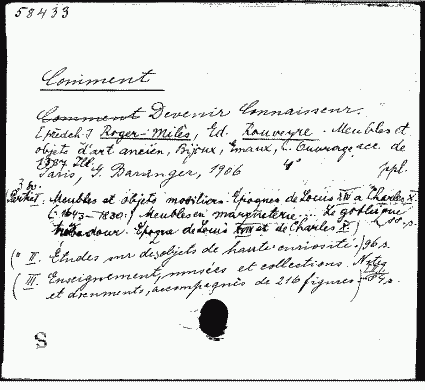 58433
Comment
Comment Devenir Connaisseur.
Roger-Milès, Ed. Rouveyre. Meubles et
objets d'art ancien, Bijoux, Emaux, Ouvrage acc. de
1387 Ill.
Paris, G. Baranger, 1906 4°
Meubles et objets mobiliers. Epoques de Louis XIII à Charles X.
(1643-1830.) Meubles en marqueterie. Le gothique
troubadour. Epoque de Louis XVIII et de Charles X)
(" II. Etudes sur des objets de haute curiosité.) 96 s.
( III. Enseignement, musées et collections. Notes
et documents, accompagnés de 216 figures.)
S